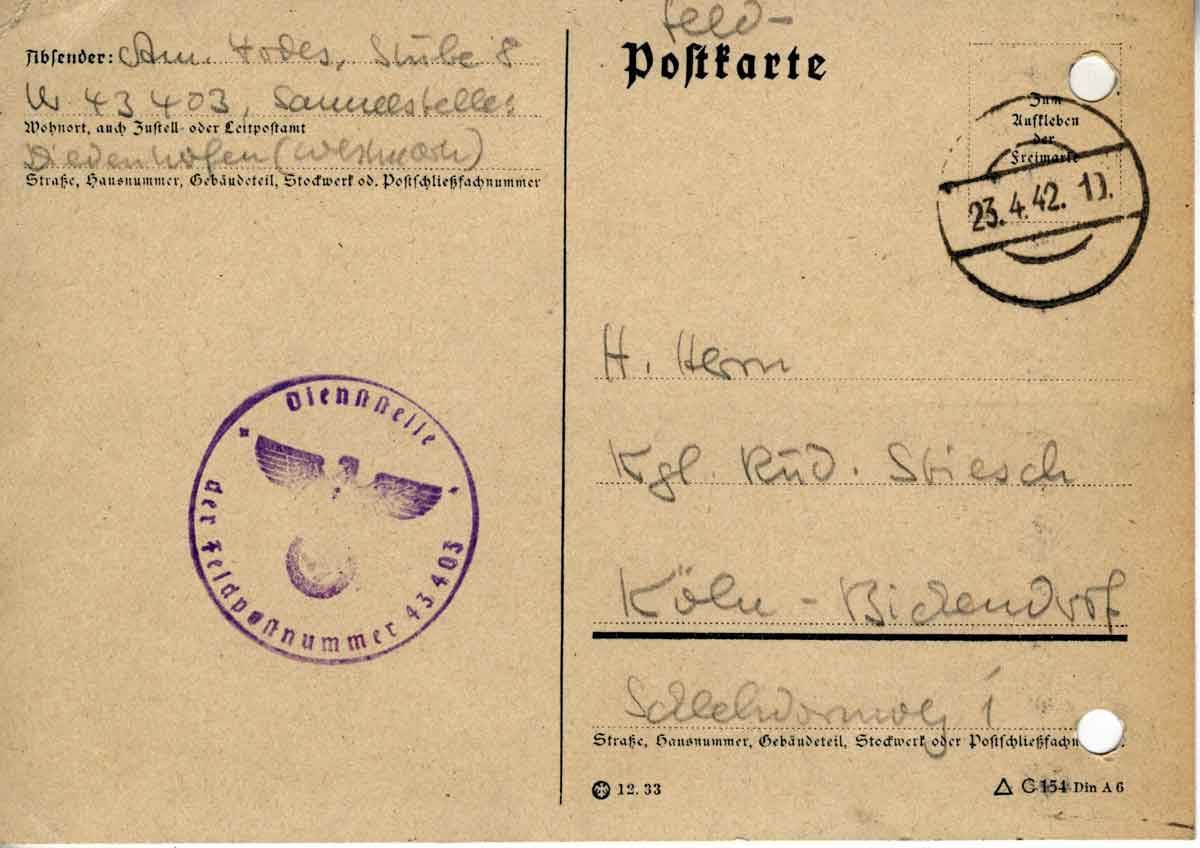 Absender: Am. Todes, Stube 8
Nr 43 403, Sammelstelle
Wohnort, auch Zustell- oder Leitpostamt
Diedenhofen (Westmark)
Straße, Hausnummer, Gebäudeteil, Stockwerk od. Postschließfachnummer
Dienststelle
der Feldpostnummer 43403
Feld-
Postkarte
Zum
Aufkleben
der
Freimarke
23.4.42.
H. Herrn
Kgl. Rud. Stiesch
Köln - Bickendorf
1
Straße, Hausnummer, Gebäudeteil, Stockwerk oder Postschließfachn
12. 33
C 154 Din A 6